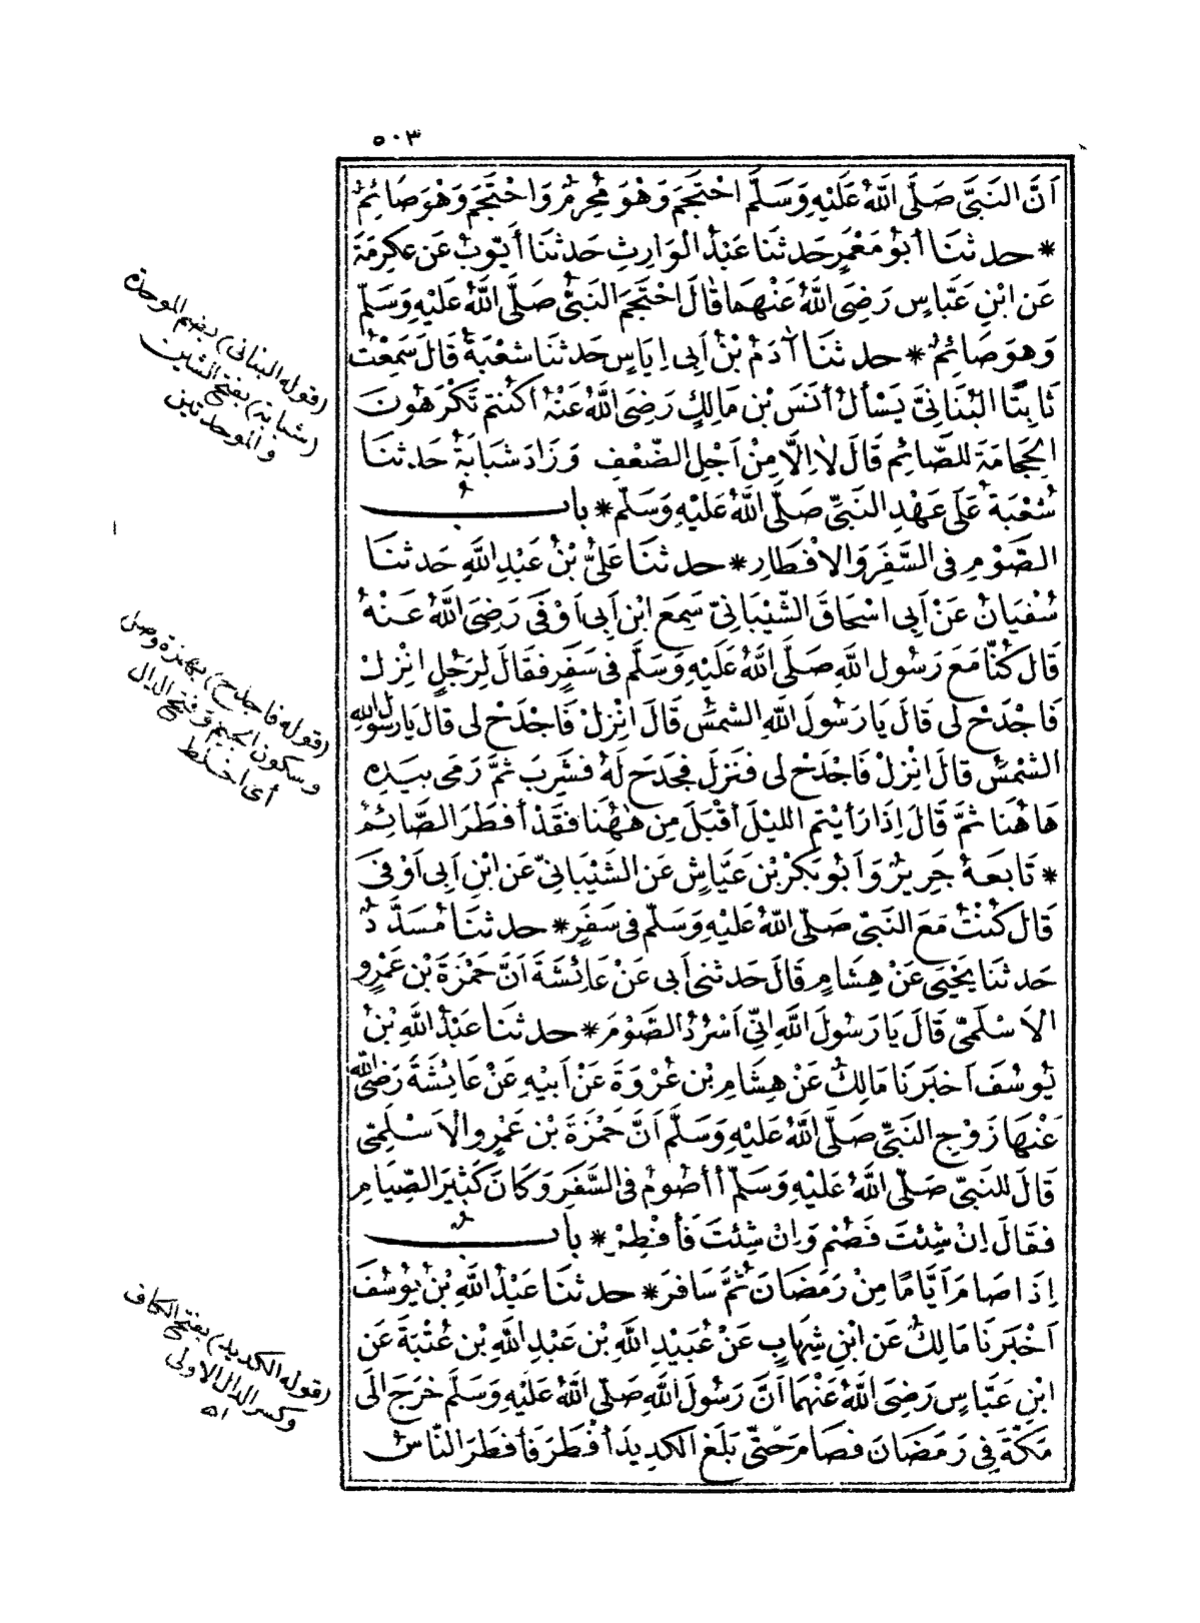 ٥٠٣
اَنَّ النَّبِىَّ صَلَّى اللَّهُ عَلَيْهِ وَسَلَّمَ احْتَجَمَ وَهْوَ مُحْرِمٌ وَاحْتَجَمَ وَهْوَ صَائِمٌ
* حدثنَا أَبُو مَعْمَرٍ حَدثنَا عَبْدُ الوَارِثِ حَدثنَا أَيُّوبُ عَن عِكرِمَةَ
عَن ابْنِ عَبَّاسٍ رَضِىَ اللَّهُ عَنْهمَا قَالَ احْتَجَمَ النَّبىُّ صَلَّى اللَّهُ عَلَيْهِ وَسَلَّمَ
وَهوَ صَائِمٌ * حدثنَا آدَمُ بْنُ اَبِى اِيَاسٍ حَدثنَا شعْبَةُ قَالَ سَمِعْتُ
ثَابِتًا البُنَانِىَّ يَسْأَلُ أَنَسَ بْن مَالِكٍ رَضِىَ اللَّهُ عَنْهُ اَكُنتم تَكْرَهُونَ
الحِجَامَةَ للصَّائِم قَالَ لَا اِلَّا مِنْ اَجْلِ الضَّعْفِ وَزَادَ شبَابَةُ حَدثنَا
شُعْبَةُ عَلَى عَهْدِ النَّبِىِّ صَلَّى اللَّهُ عَلَيْهِ وَسَلَّم * بابُ
الصَّوْمِ فى السَّفَرِ وَالاِفْطَارِ * حدثنَا عَلِىُّ بْنُ عَبْدِ اللَّهِ حَدثنَا
سُفيَانُ عَنْ اَبِى اسْحَاقَ الشَّيْبَانِىِّ سَمِعَ ابْن اَبِى اَوْفَى رَضِىَ اللَّهُ عَنْهُ
قَالَ كُنَّا مَعَ رَسُولِ اللَّهِ صَلَّى اللَّهُ عَلَيْهِ وَسَلَّم فى سَفَرٍ فقَالَ لِرَجُلٍ انْزِلْ
فَاجْدَحْ لى قَالَ يَا رَسُولَ اللَّهِ الشمسُ قَالَ انْزِلْ فَاجْدَحْ لى قَالَ يَا رسُولَ اللَّه
الشمْسُ قَالَ انْزِلْ فَاجْدَحْ لى فنَزَلَ فجَدَحَ لَهُ فشَرِبَ ثمَّ رَمَى بيَدِهِ
هَاهُنَا ثمَّ قَالَ اِذَا رَأيْتم الليْلَ أقْبَلَ مِن هٰهُنَا فقَدْ أفطَرَ الصَّائِمُ
* تَابَعَهُ جَرِيرٌ وَاَبُو بَكْرِ بْن عَيَّاشٍ عَن الشيْبَانِىِّ عَن ابْنِ اَبِى اَوْفَى
قَالَ كُنْتُ مَعَ النَّبىِّ صَلَّى اللَّهُ عَلَيْهِ وَسَلَّم فى سَفَرٍ * حدثنَا مُسَدَّدٌ
حَدثنَا يَحْيَى عَنْ هِشَامٍ قَالَ حَدثنى اَبى عَنْ عَائِشَةَ اَنَّ حَمْزَةَ بْن عَمْرٍو
الاَسْلَمِىَّ قَالَ يَا رَسُولَ اللَّهِ اِنِّى اَسْرُدُ الصَّوْمَ * حدثنَا عَبْدُ اللَّهِ بْنُ
يُوسُفَ اَخبَرَنَا مَالِكٌ عَنْ هِشَامِ بْنِ عُرْوَةَ عَنْ اَبيْهِ عَنْ عَائِشَةَ رَضِىَ اللَّه
عَنْهَا زَوْجِ النَّبِىِّ صَلَّى اللَّهُ عَليْهِ وَسَلَّمَ اَنَّ حَمْزَةَ بْن عَمْرٍو الاَسْلَمِىَّ
قَالَ للنَّبىِّ صَلَّى اللَّهُ عَليْهِ وَسَلَّمَ أأصُومُ فى السَّفَرِ وَكَانَ كَثِيرَ الصِّيَامِ
فقَالَ اِنْ شِئتَ فَصُمْ وَاِنْ شِئتَ فَأفْطِرْ * بابُ
اِذَا صَامَ اَيَّامًا مِنْ رَمَضَانَ ثُمَّ سَافرَ * حدثنَا عَبْدُ اللَّهِ بْنُ يُوسُفَ
اَخْبَرَنَا مَالِكٌ عَن ابْنِ شِهَابٍ عَنْ عُبَيْدِ اللَّهِ بْن عَبْدِ اللَّهِ بْن عُتْبَةَ عَن
ابْنِ عَبَّاسٍ رَضِىَ اللَّهُ عَنْهمَا اَنَّ رَسُولَ اللَّهِ صَلَّى اللَّهُ عَلَيْهِ وَسَلَّمَ خرَجَ اِلَى
مَكَّةَ فِى رَمَضَانَ فصَامَ حَتَّى بَلَغَ الكَدِيدَ أفْطَرَ فَأفطَرَ النَّاسُ
(قوله البنانى) بضم الموحدة
(شبابة) بفتح الشين
والموحدتين
(قوله فاجدح) بهمزة وصل
وسكون الجيم وفتح الدال
أى اخلط
(قوله الكديد) بفتح الكاف
وكسر الدال الاولى
اه